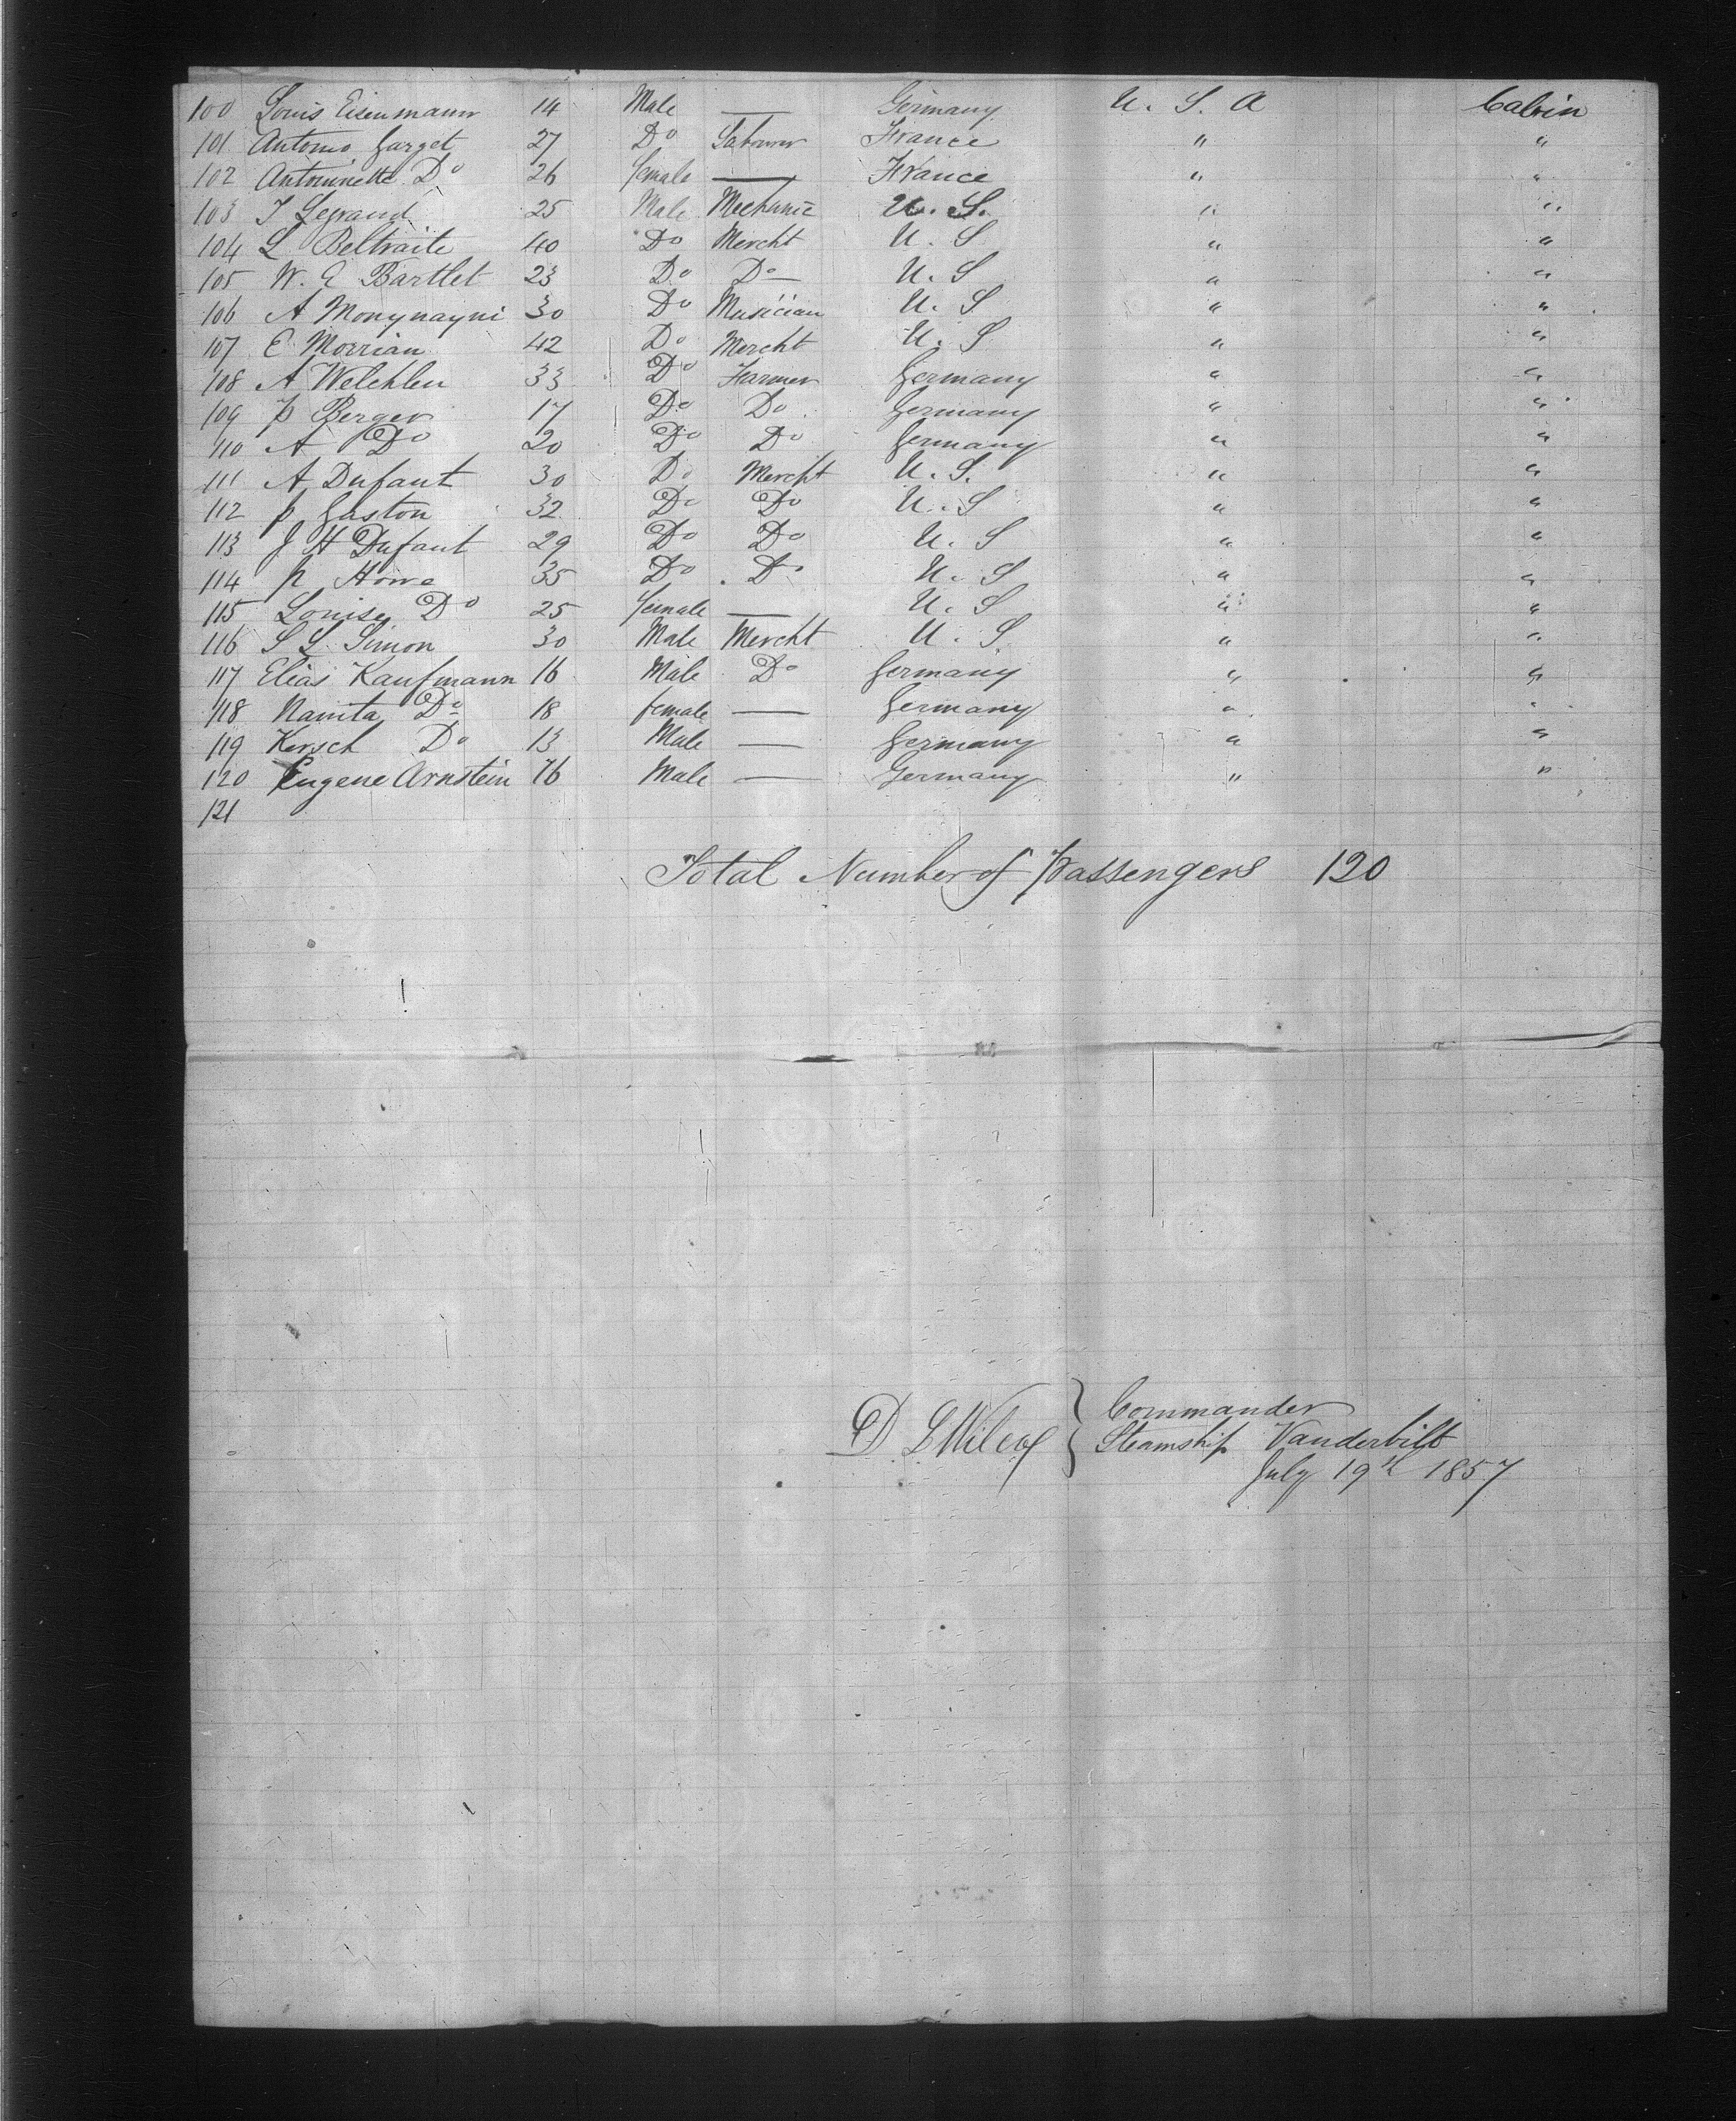 100 Louis Eisenmann 14 Male — Germany U. S. A Cabin
101 Antonio Garget 27 Do Labourer France " "
102 Antoinette Do 26 female — France " "
103 J Legrand 25 Male Mechanic U. S. " "
104 L Beltraite 40 Do Mercht U. S " "
105 W. E Bartlet 23 Do Do U. S " "
106 A Monynayni 30 Do Musician U. S " "
107 E Morrian 42 Do Mercht U. S " "
108 A Welchlen 33 Do Farmer Germany " "
109 P Berger 17 Do Do Germany " "
110 A Do 20 Do Do Germany " "
111 A Dufaut 30 Do Mercht U. S. " "
112 P Gaston 32 Do Do U. S " "
113 J H Dufaut 29 Do Do U. S " "
114 P Howe 35 Do Do U. S " "
115 Louise Do 25 female — U. S " "
116 S L Simon 30 Male Mercht U. S " "
117 Elias Kaufmann 16 Male Do Germany " "
118 Nanita Do 18 female — Germany " "
119 Kersch Do 13 Male — Germany " "
120 Eugene Arnstein 16 Male — Germany " "
121
Total Number of Passengers 120
D L Wilcox } Commander
Steamship Vanderbilt
July 19th 1857